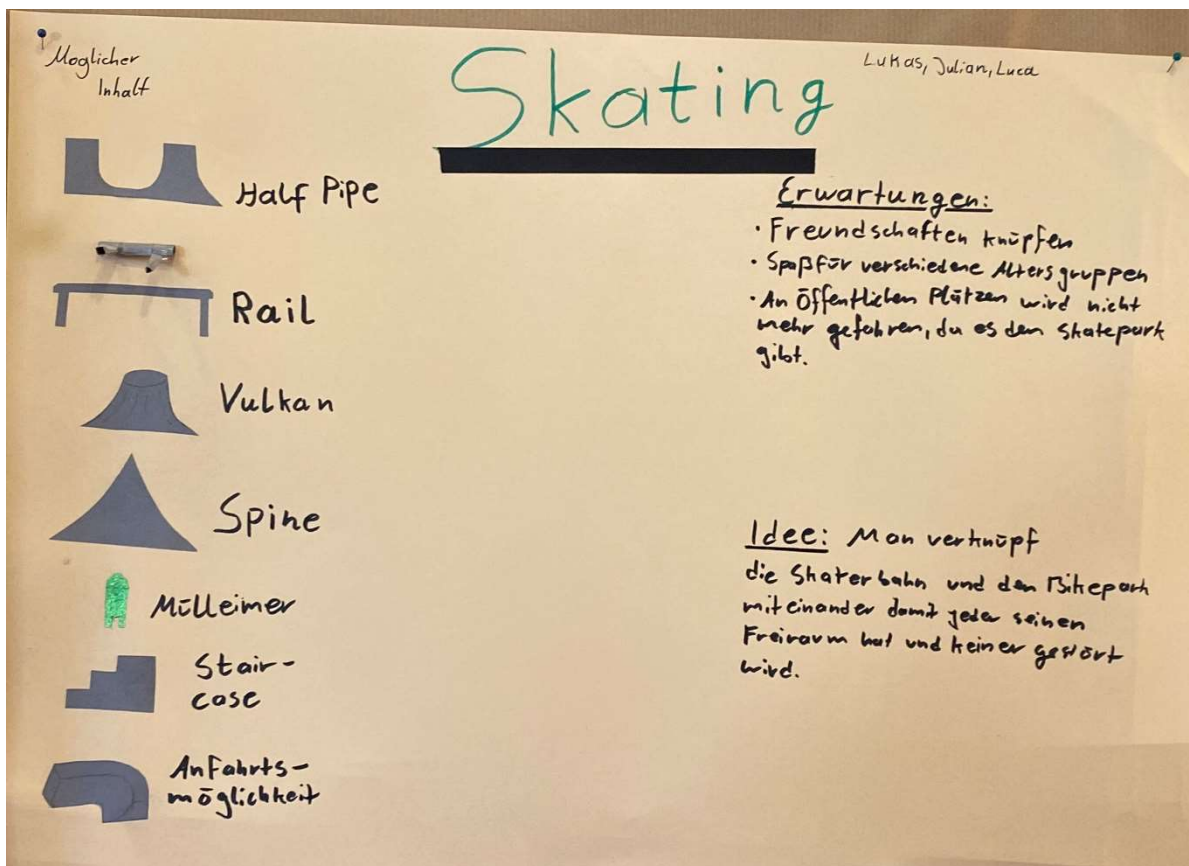 Moglicher
Inhalt
Skating
Lukas, Julian, Luca
Half Pipe
Rail
Vulkan
Spine
Mülleimer
Stair-
case
Anfahrts-
möglichkeit
Erwartungen:
· Freundschaften knüpfen
· Spaß für verschiedene Altersgruppen
· An öffentlichen Plätzen wird nicht
mehr gefahren, da es den Skatepark
gibt.
Idee: Man verknüpf
die Skaterbahn und den Bikepark
miteinander damit jeder seinen
Freiraum hat und keiner gestört
wird.